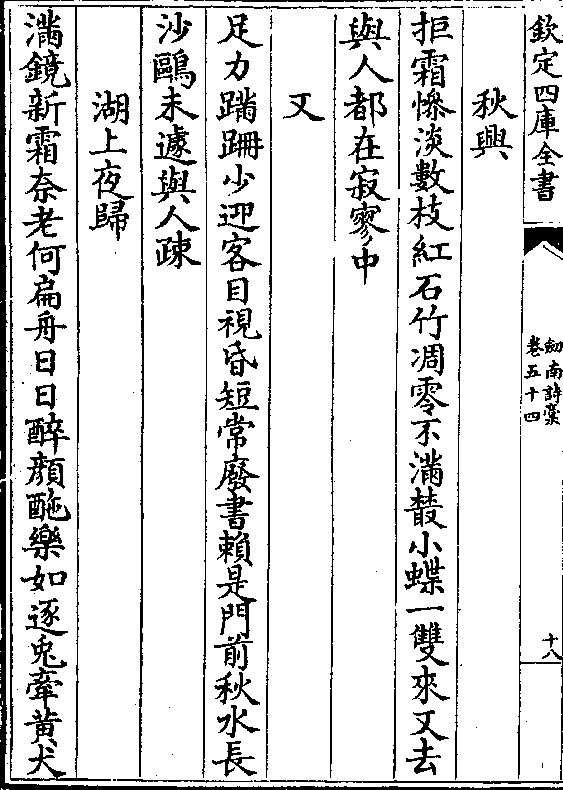 欽定四庫全書
劒南詩稾
卷五十四
十八
秋興
拒霜慘淡數枝紅石竹凋零不滿叢小蝶一雙來又去
與人都在寂寥中
又
足力蹣跚少迎客目視昏短常廢書賴是門前秋水長
沙鷗未遽與人疎
湖上夜歸
滿鏡新霜奈老何扁舟日日醉顔酏樂如逐兎牽黄犬